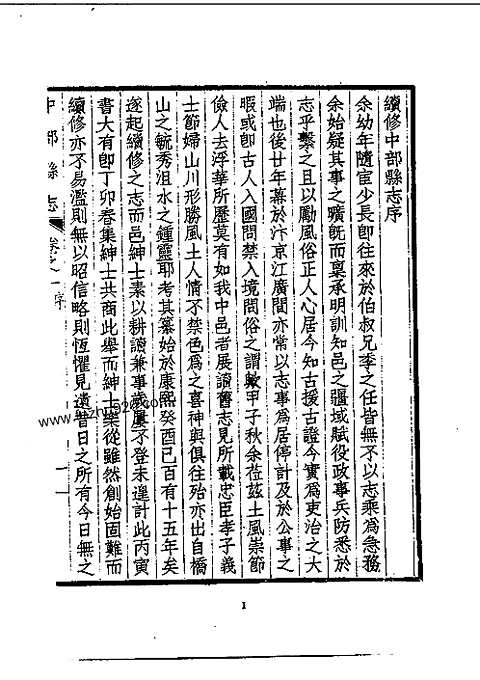 續修中部縣志序
余幼年隨宦少長卽往來於伯叔兄季之任皆無不以志乘爲急務
余始疑其事之曠旣而稟承明訓知邑之疆域賦役政事兵防悉於
志乎繫之且以勵風俗正人心居今知古援古證今實爲吏治之大
端也後廿年幕於汴京江廣間亦常以志事爲居停計及於公事之
暇或卽古人入國問禁入境問俗之謂歟甲子秋余莅茲土風崇節
儉人去浮華所歷莫有如我中邑者展讀舊志見所載忠臣孝子義
士節婦山川形勝風土人情不禁色爲之喜神與俱往殆亦出自橋
山之毓秀沮水之鍾靈耶考其纂始於康熙癸酉已百有十五年矣
遂起續修之志而邑紳士素以耕讀兼事歲屢不登未遑計此丙寅
書大有卽丁卯春集紳士共商此舉而紳士樂從雖然創始固難而
續修亦不易濫則無以昭信略則恆懼見遺昔日之所有今日無之
中部縣志
序
一
1